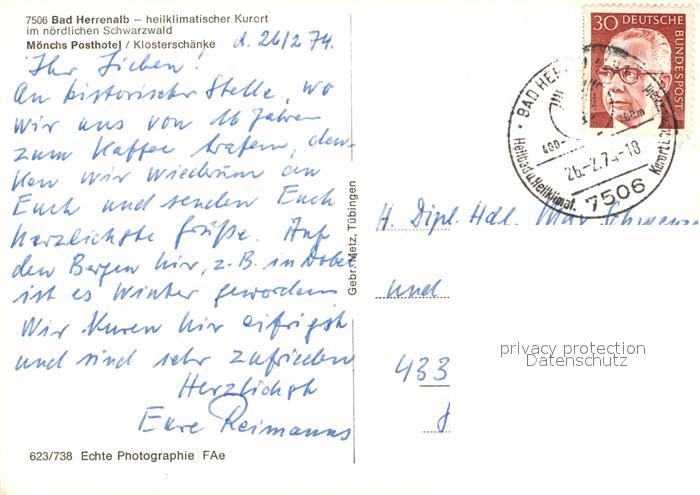 7506 Bad Herrenalb – heilklimatischer Kurort
im nördlichen Schwarzwald
Mönchs Posthotel / Klosterschänke
d. 26/2 74.
Ihr Lieben!
An historischer Stelle, wo
wir uns vor 16 Jahren
zum Kaffee trafen, den-
ken wir wiederum an
Euch und senden Euch
herzlichste Grüße. Auf
den Bergen hier, z. B. in Dobel
ist es Winter geworden
Wir kuren hier eifrigst
und sind sehr zufrieden
Herzlichst
Eure Reimanns
623/738 Echte Photographie FAe
Gebr. Metz, Tübingen
30 DEUTSCHE
BUNDESPOST
BAD HER
400-
26.-2.74-18
Heilbad u. Heilklimat. Kurort
7506
H. Dipl. Hdl. Max
und
433
privacy protection
Datenschutz